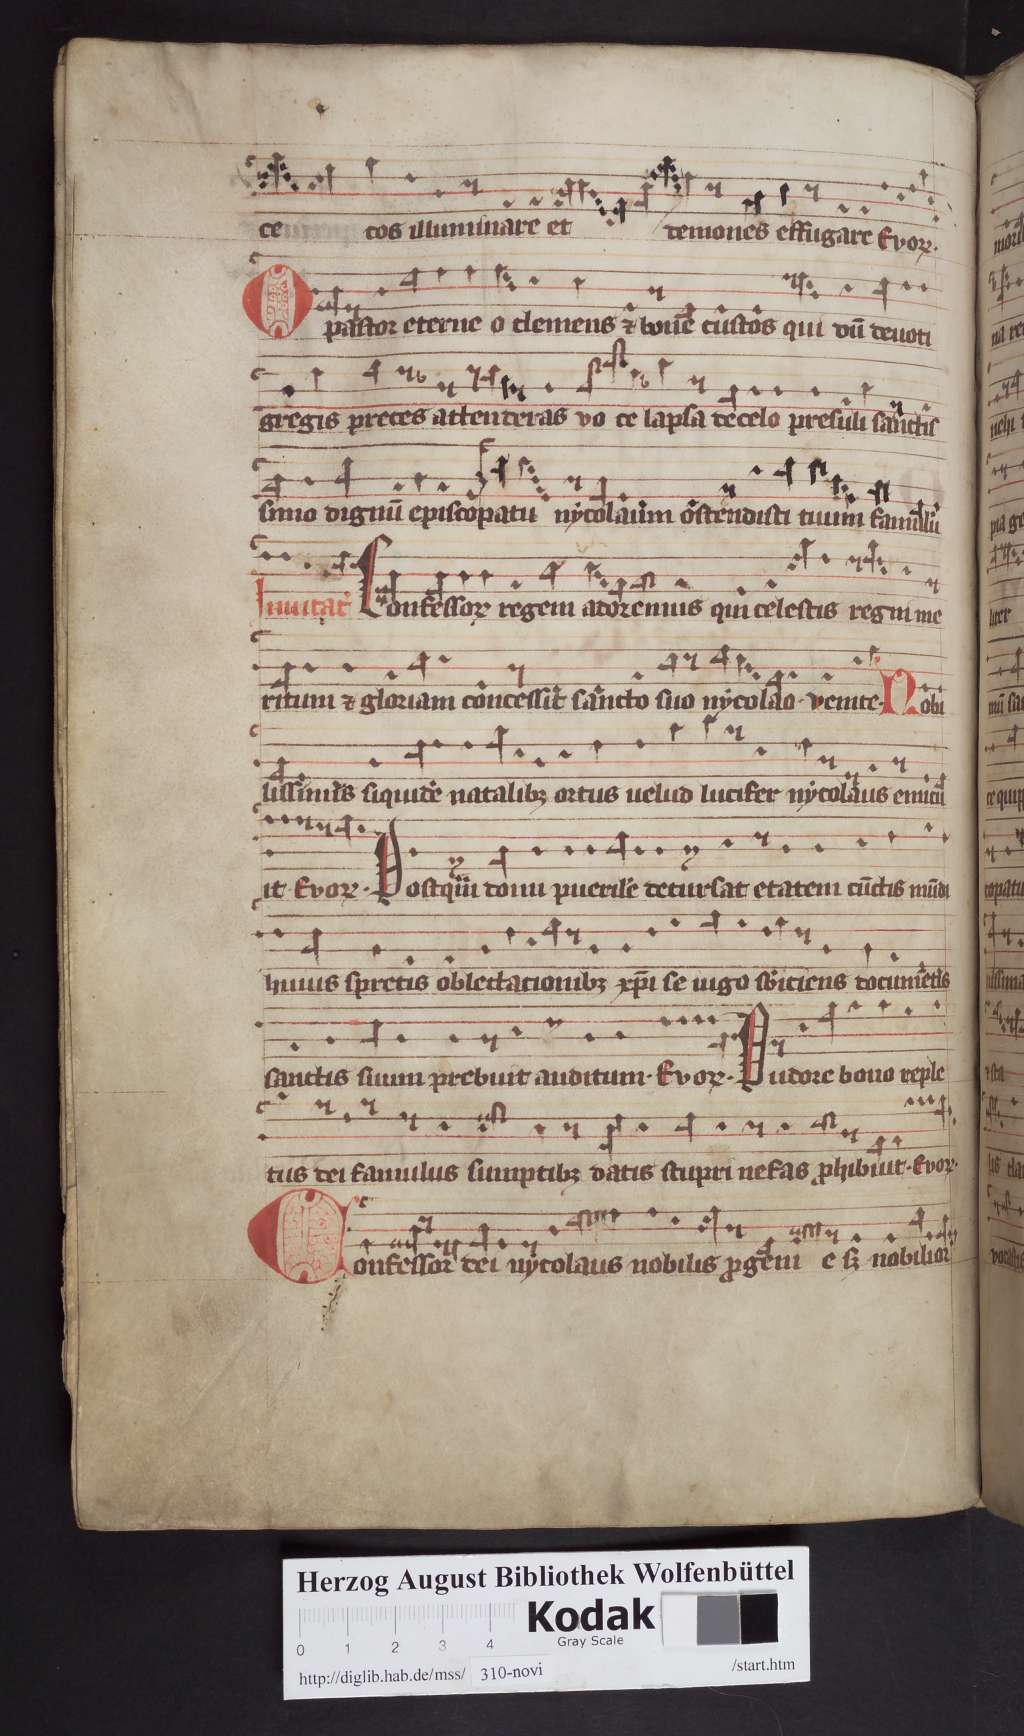 ce cos illuminare et demones effugare Evoꝝ.
O pastor eterne o clemens ⁊ bone custos qui dū deuoti
gregis preces attenderas vo ce lapsa de celo presuli sanctis
simo dignū episcopatu nycolaum ostendisti tuum famulū
Inuitat Confessoꝝ regem adoremus qui celestis regni me
ritum ⁊ gloriam concessit sancto suo nycolao. venite. Nobi
lissimis siquidē natalibꝫ ortus uelud lucifer nycolaus emicu
it Evoꝝ. Postquā domi puerilē decursat etatem cūctis mūdi
huius spretis oblectacionibꝫ xp̄i se iugo sb̄iciens documētis
sanctis suum prebuit auditum. Evoꝝ. Pudore bono reple
tus dei famulus sumptibꝫ datis stupri nefas ꝓhibuit. Evoꝝ.
Confessor dei nycolaus nobilis ꝓgēni e sꝫ nobilior
Herzog August Bibliothek Wolfenbüttel
Kodak
Gray Scale
0 1 2 3 4
http://diglib.hab.de/mss/ 310-novi /start.htm